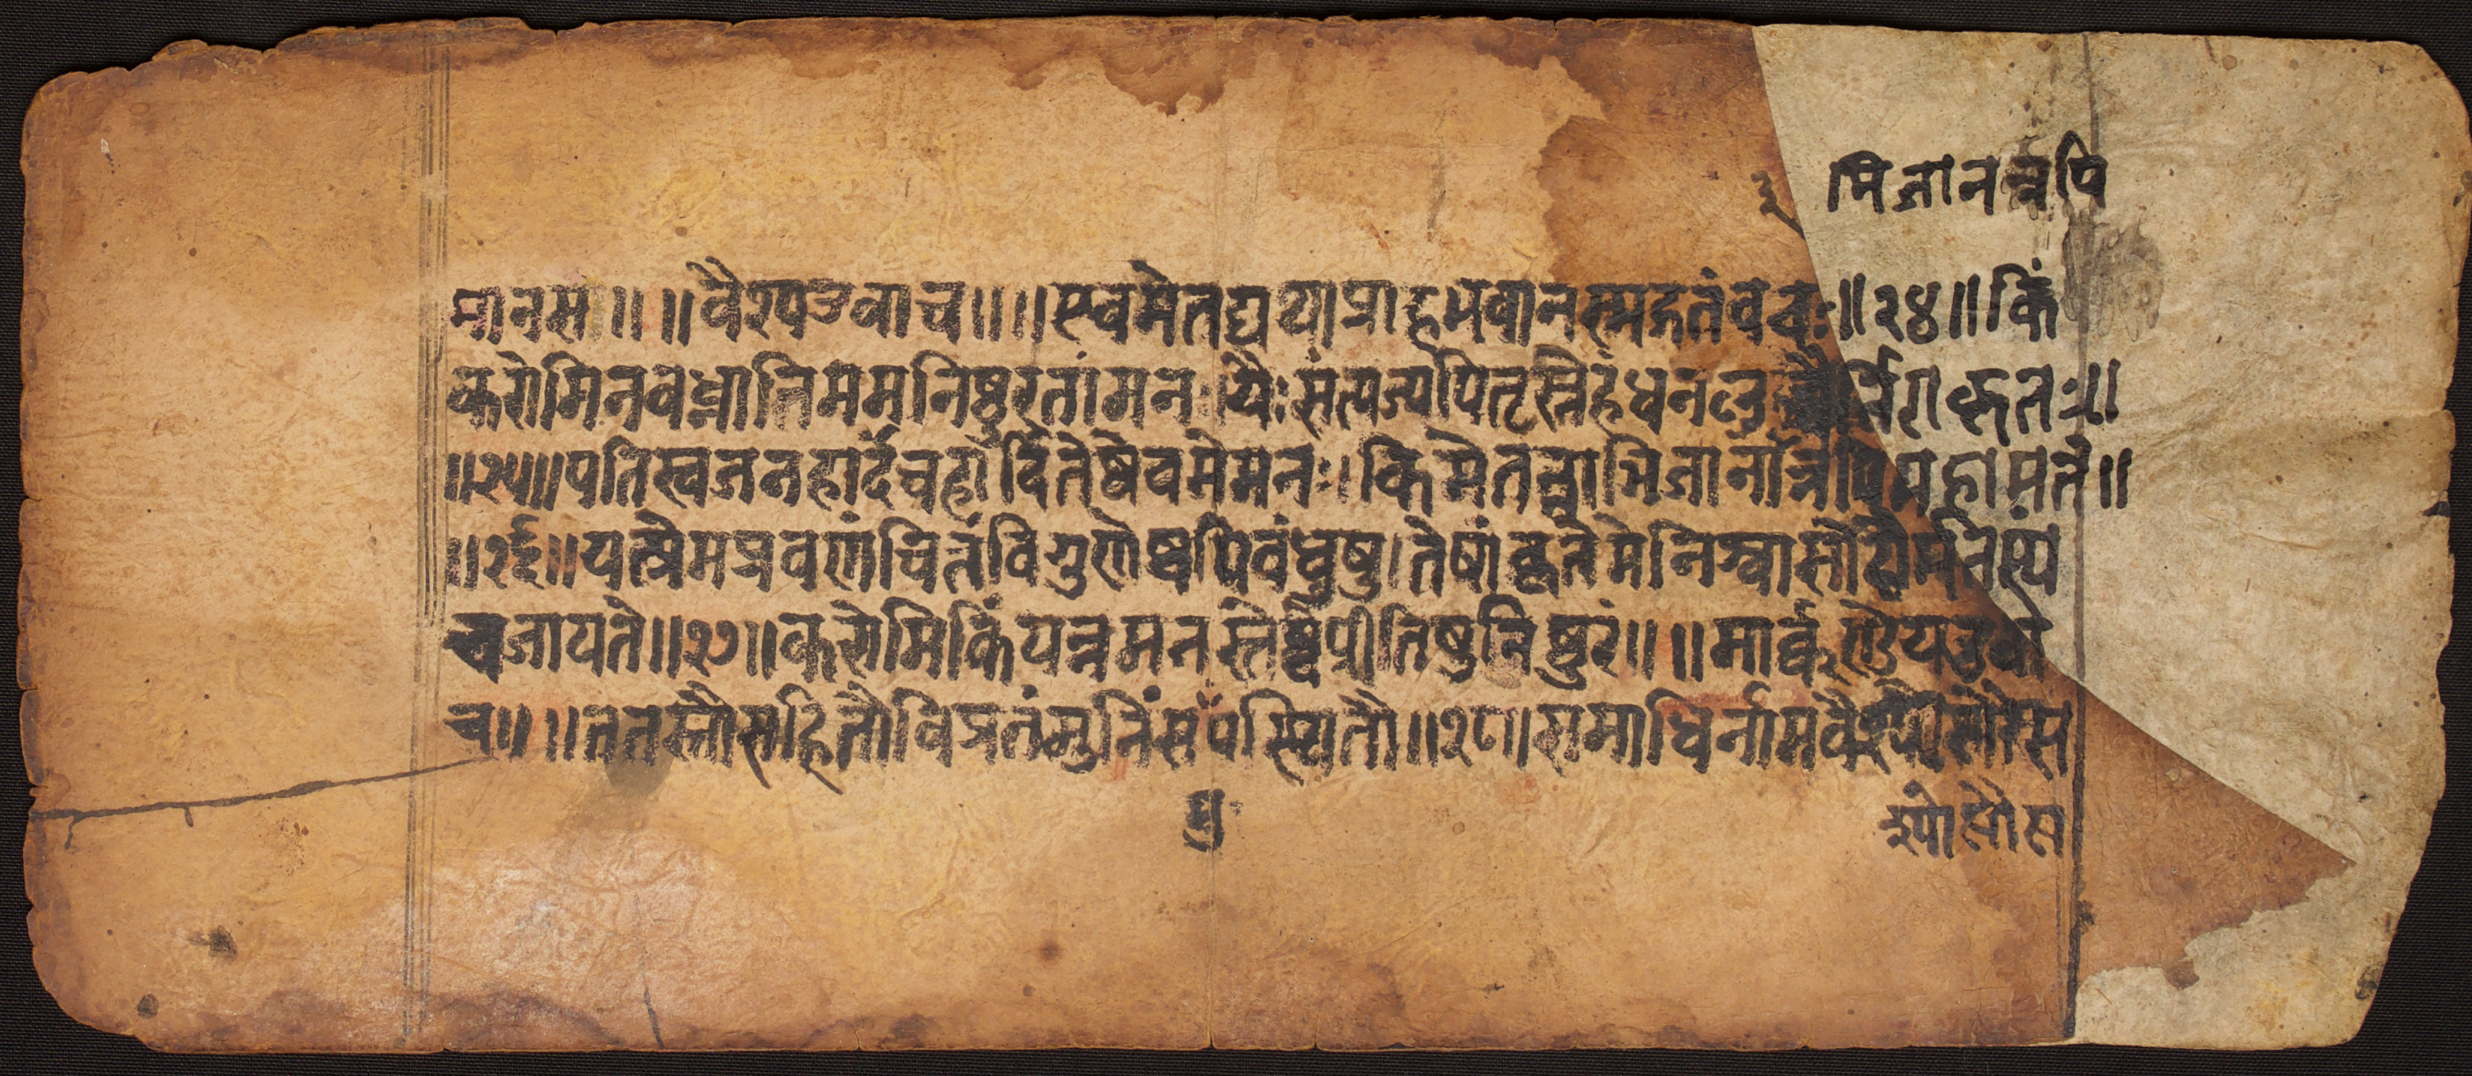 भिजानन्नपि
मानस॥ ॥वैश्यउवाच॥ ॥एवमेतद्यथाप्राहभवानस्मद्गतंवचः॥२४॥किं
करोमिनवध्नातिममनिष्ठुरतांमनः।यैःसंत्यज्यपितृस्नेहंधनलु र्निराकृतः॥
॥२५॥पतिस्वजनहार्दंचहार्दितेष्वेवमेमनः।किमेतन्नाभिजानान्नपिमहामते॥
॥२६॥यत्प्रेमप्रवणंचित्तंविगुणेष्वपिवंधुषु।तेषांकृतेमेनिश्वासोदौर्मनस्यं
चजायते॥२७॥करोमिकिंयन्नमनस्तेष्वप्रीतिषुनिष्ठुरं॥ ॥मार्क्कण्डेयउवा
च॥ ॥ततस्तौसहितौविप्रतंमुनिंसंपस्थितौ॥२८॥समाधिर्नामवैश्योसौस
श्योसौस